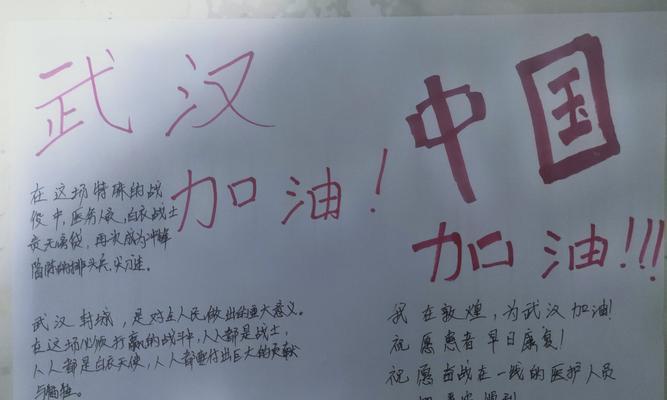 武汉
加油!
中国
加油!!!
在这场特殊的战
役中,医务人员,白衣战士
责无旁贷,再次成为冲锋
陷阵的排头兵、尖刀连。
武汉封城,是对全人民做出的重大意义。
在这场必须打赢的战斗中,人人都是战士,
人人都是白衣天使,人人都要付出巨大的贡献
与牺牲。
我在敦煌,为武汉加油!
祝愿患者早日康复!
祝愿奋战在一线的医护人员